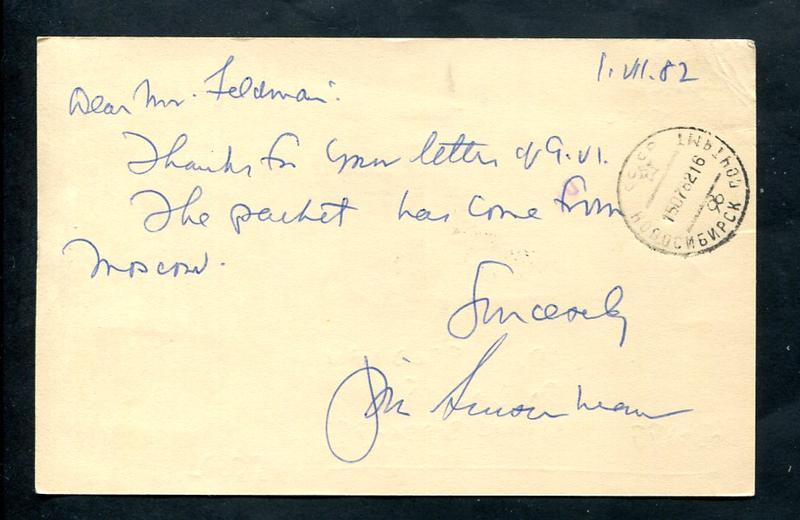 1.VII.82
Dear Mr. Feldman:
Thanks for your letter of 9.VI.
The packet has come from
Moscow.
Sincerely
СССР
ПОЧТАМТ
15078216
НОВОСИБИРСК